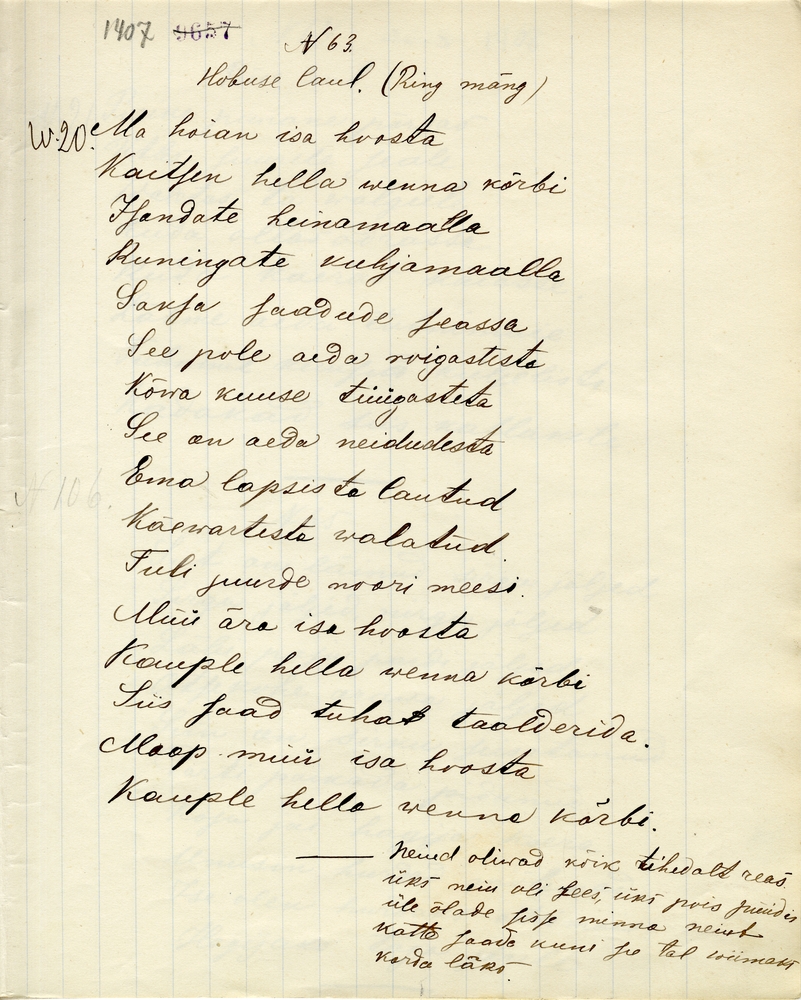 1407 9657
N 63.
Hobuse laul. (Ring mäng)
W. 20. Ma hoian isa hoosta
Kaitsen hella wenna kõrbi
Isandate heinamaalla
Kuningate kuhjamaalla
Saksa saadude seassa
See pole aeda roigastista
Kõwa kuuse tüügasteta
See on aeda neidudesta
Ema lapsista lautud
Käewartesta walatud.
Tuli juurde noori meesi.
Müü ära isa hoosta
Kauple hella wenna kõrbi
Siis saad tuhat taalderida.
Maap müü isa hoosta
Kauple hella wenna kõrbi.
Neiud oliwad kõik tihedalt reas.
üks neiu oli sees, üks pois püüdis
üle õlade sisse minna neiut
katte saada kuni se tal wiimaks
korda läks.
N 106.